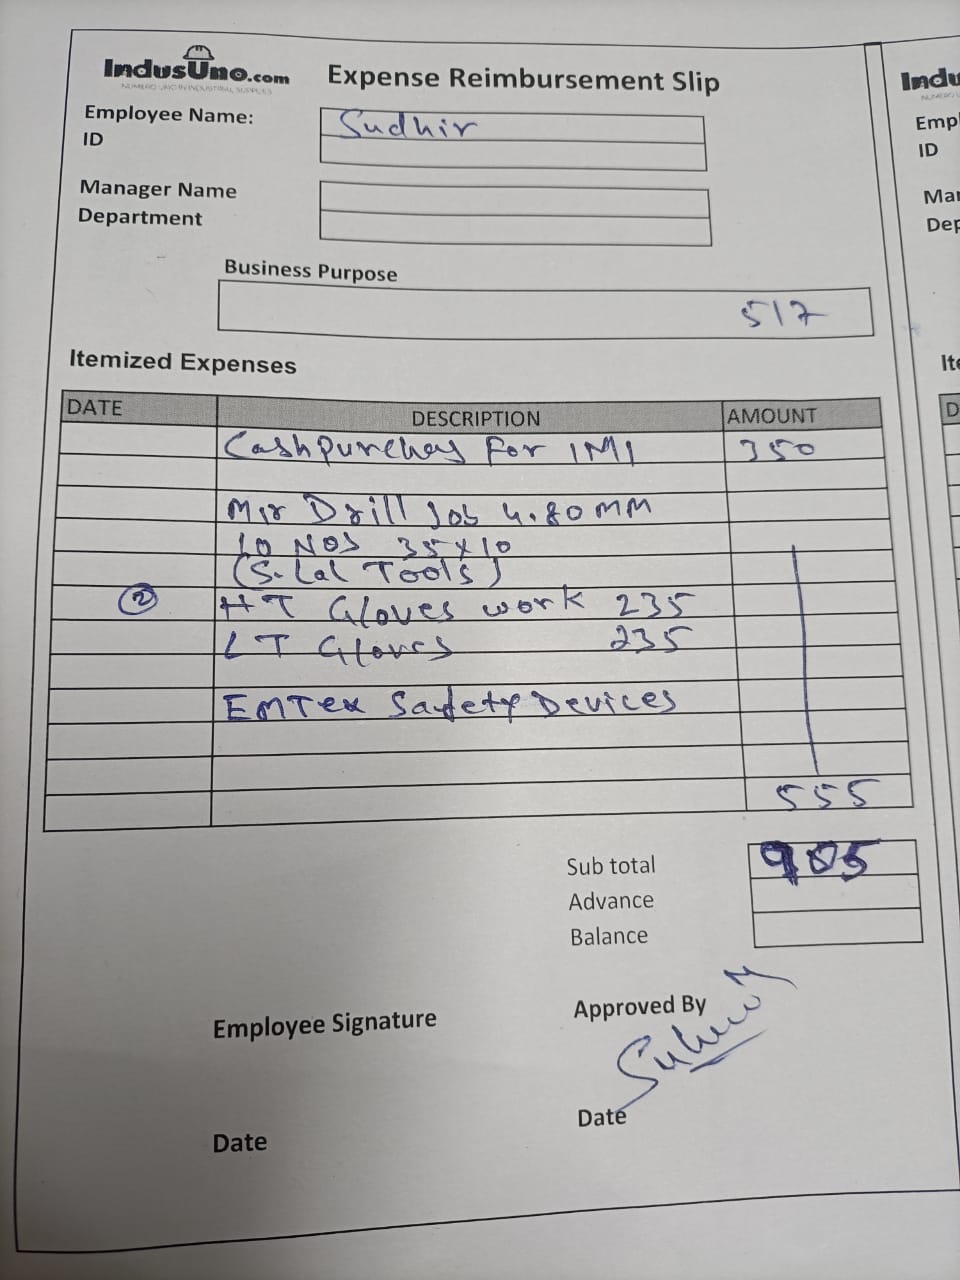 IndusUno.com
NUMERO UNO IN INDUSTRIAL SUPPLIES
Expense Reimbursement Slip
Employee Name: Sudhir
ID
Manager Name
Department
Business Purpose
517
Itemized Expenses
DATE DESCRIPTION AMOUNT
Cash For IMI 350
Drill Job 4.80 MM
10 NOS 35x10
(S. Lal Tools)
② HT Gloves work 235
LT Gloves 235
EMTex Safety Devices
555
Sub total 905
Advance
Balance
Employee Signature
Approved By
Date
Date
Indu
Emp
ID
Mar
Dep
Ite
D